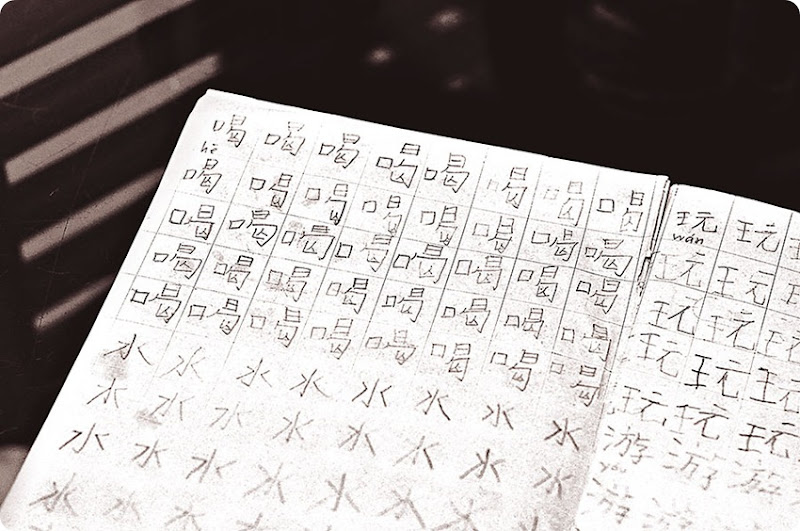 喝 喝 喝 喝 喝 喝 喝 喝
hē
喝 喝 喝 喝 喝 喝 喝 喝
喝 喝 喝 喝 喝 喝 喝 喝
喝 喝 喝 喝 喝 喝 喝 喝
喝 喝 喝 喝 喝 喝 喝 喝
水 水 水 水 水 水 水 水
水 水 水 水 水 水 水 水
水 水 水 水 水 水 水 水
水 水 水 水 水 水 水
玩 玩
wán
玩 玩
玩 玩 玩
玩 玩 玩
玩 玩 玩
游 游 游
yóu
游 游 游